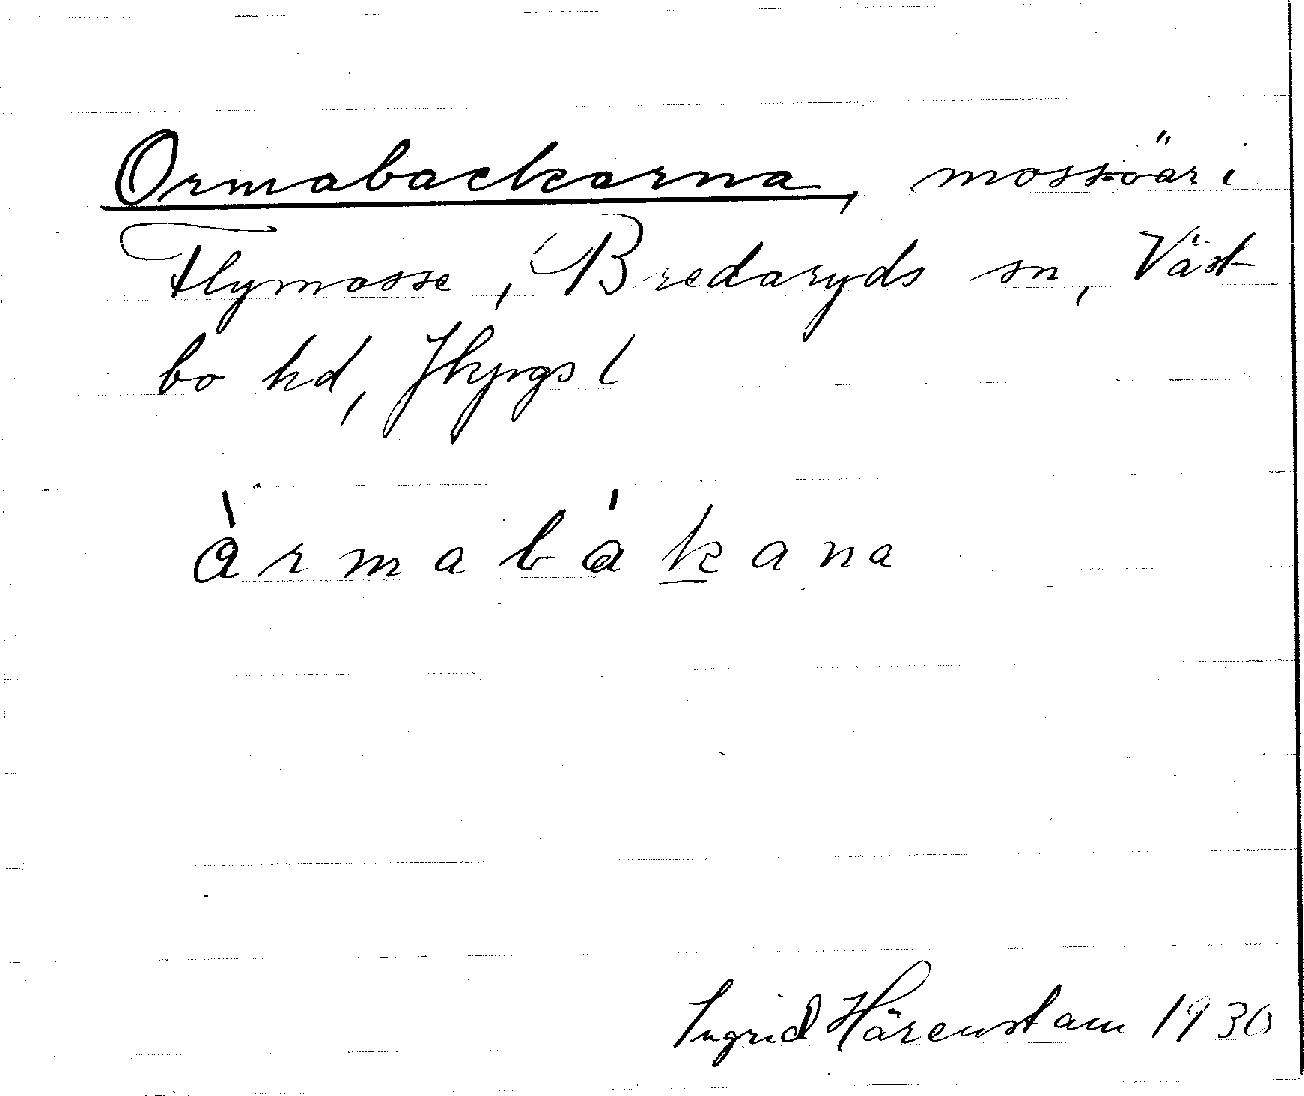 Ormabackarna, mossöar i
Flymosse, Bredaryds sn, Väst-
bo hd, Jkpgs l
àrmabákana
Ingrid Härenstam 1930